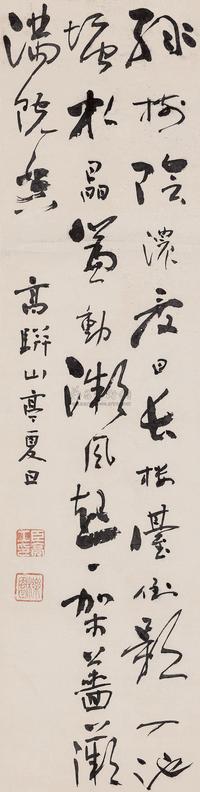 綠樹陰濃夏日長樓臺倒影入池
塘水晶簾動微風起一架薔薇
滿院香
高駢山亭夏日